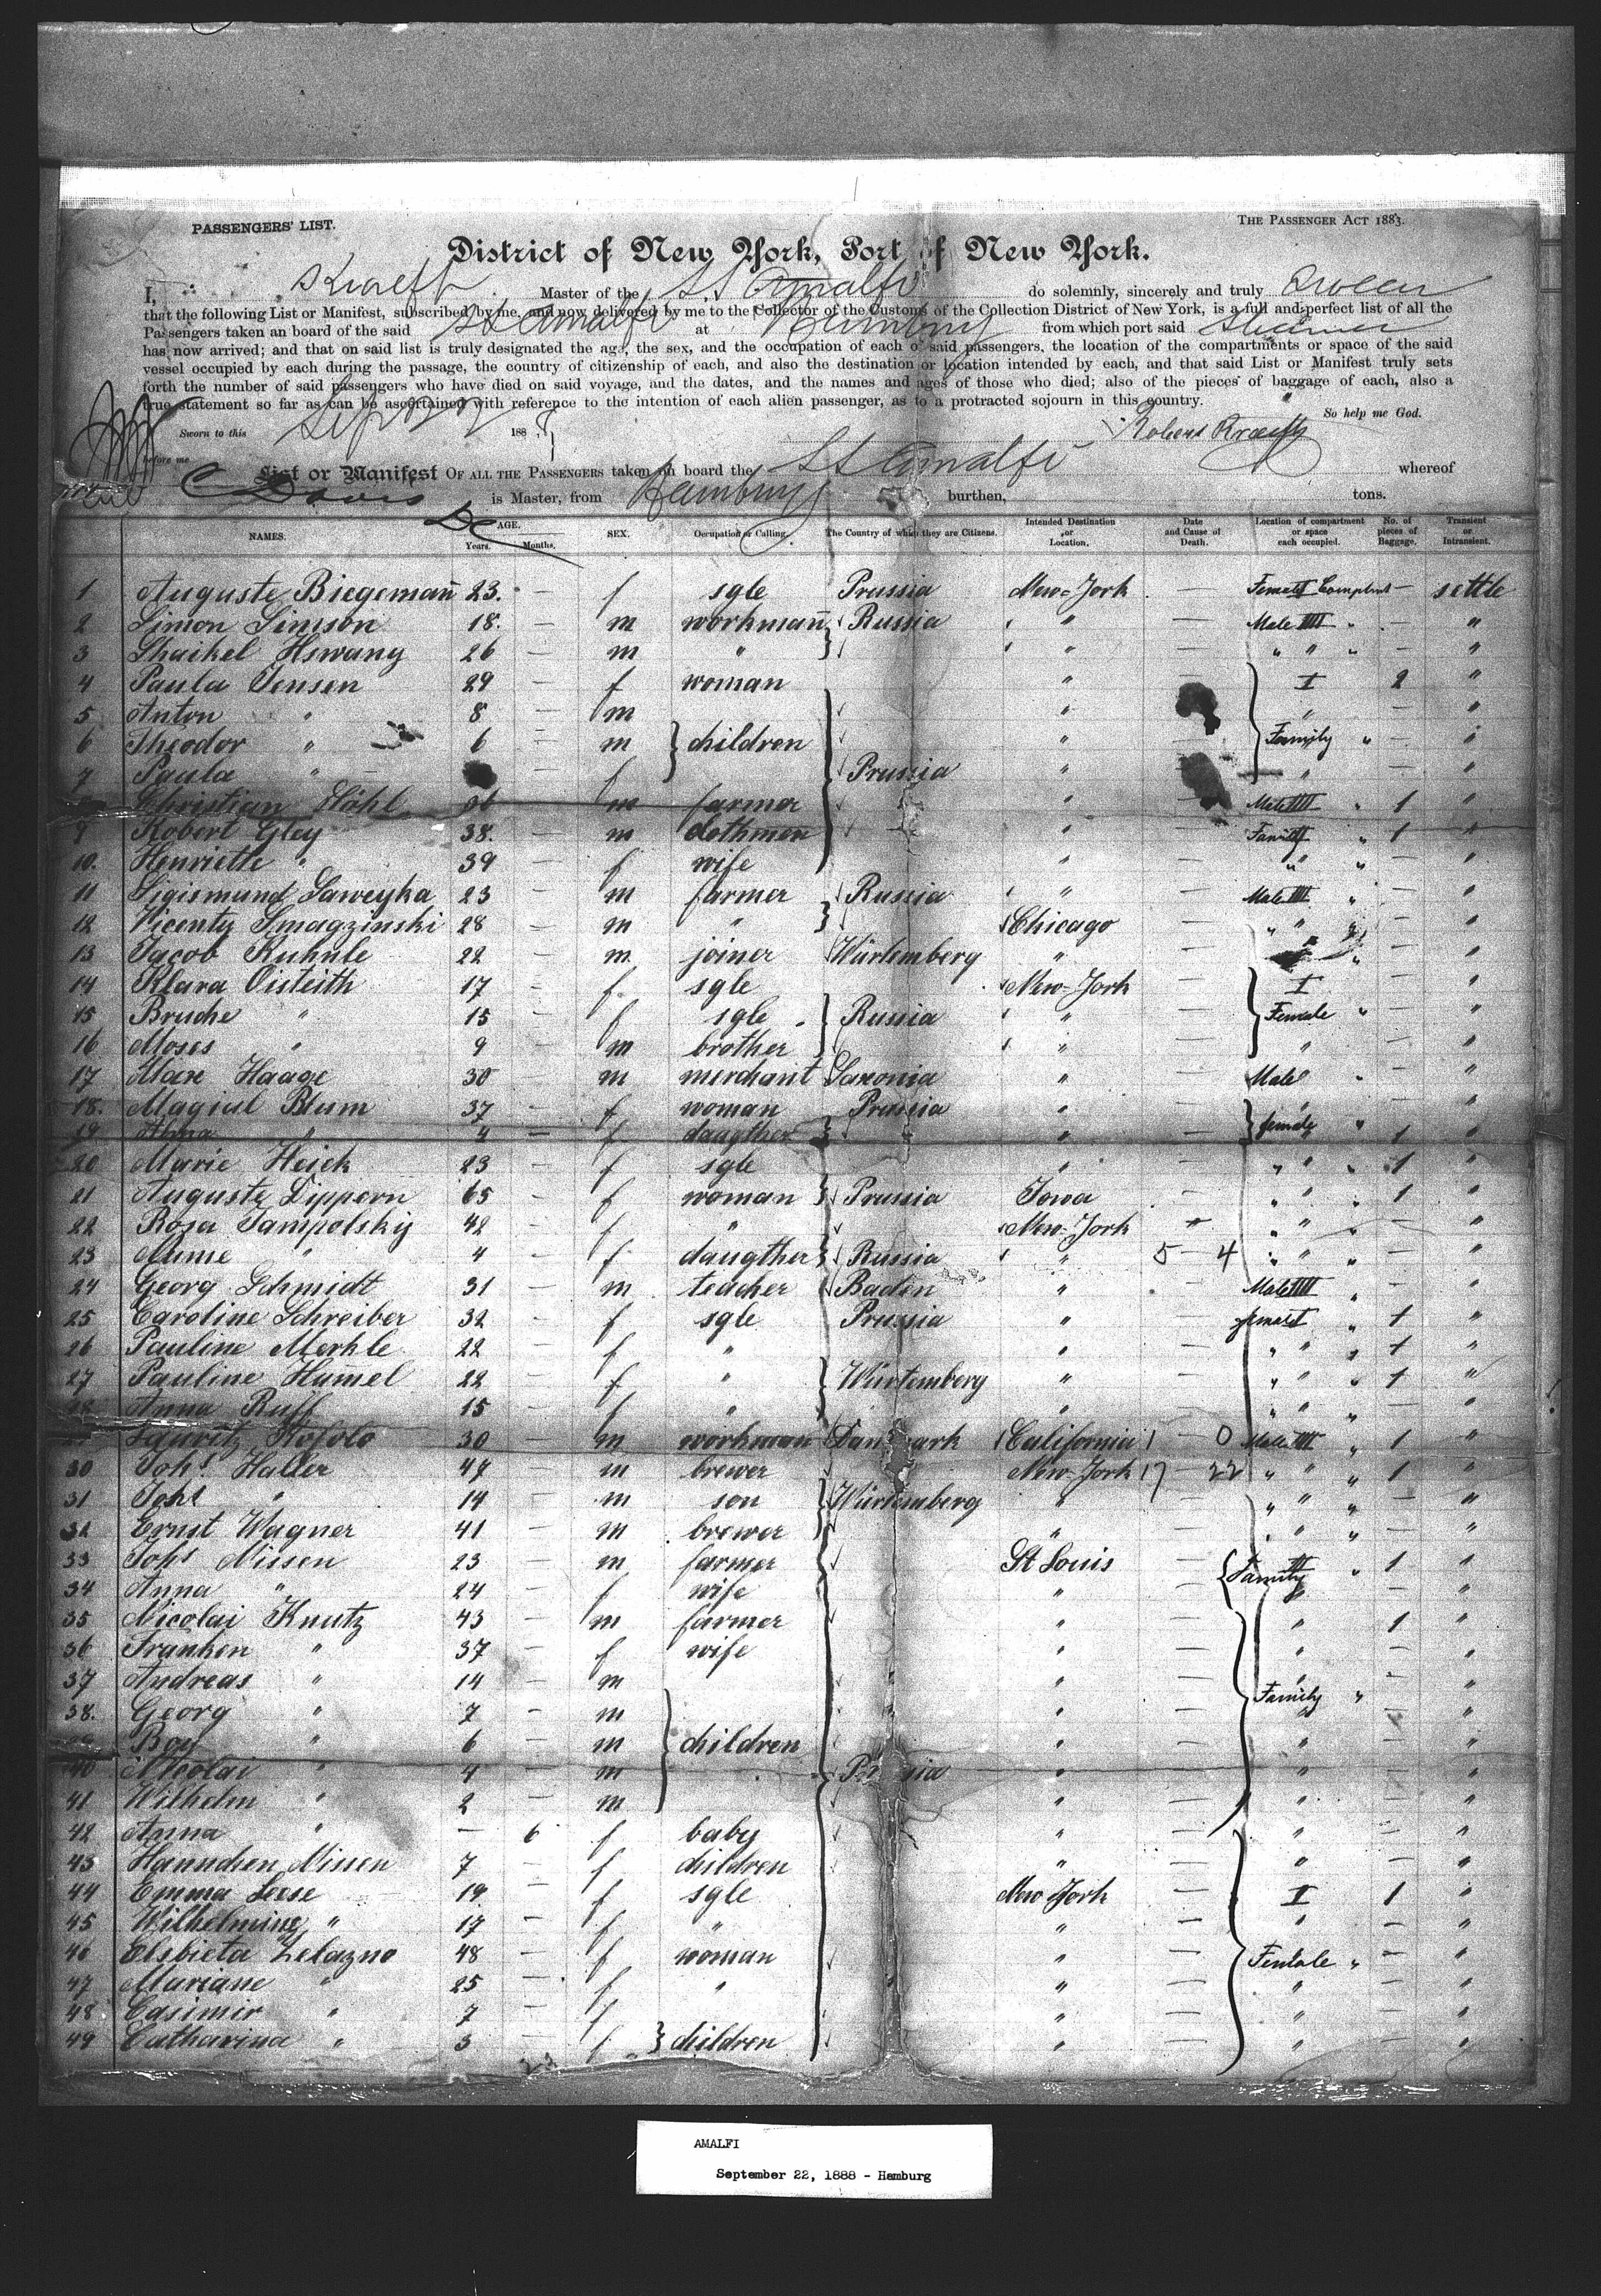 PASSENGERS' LIST.
THE PASSENGER ACT 1883.
District of New York, Port of New York.
I, Kraeft Master of the SS Amalfi do solemnly, sincerely and truly swear
that the following List or Manifest, subscribed by me, and now delivered by me to the Collector of the Customs of the Collection District of New York, is a full and perfect list of all the
Passengers taken on board of the said SS Amalfi at Hamburg from which port said Steamer
has now arrived; and that on said list is truly designated the age, the sex, and the occupation of each of said passengers, the location of the compartments or space of the said
vessel occupied by each during the passage, the country of citizenship of each, and also the destination or location intended by each, and that said List or Manifest truly sets
forth the number of said passengers who have died on said voyage, and the dates, and the names and ages of those who died; also of the pieces of baggage of each, also a
true statement so far as can be ascertained with reference to the intention of each alien passenger, as to a protracted sojourn in this country.
So help me God.
Sworn to this Sept 22 1888
Robert Kraeft
before me
List or Manifest OF ALL THE PASSENGERS taken on board the SS Amalfi whereof
is Master, from Hamburg burthen, tons.
NAMES. AGE. Years. Months. SEX. Occupation or Calling. The Country of which they are Citizens. Intended Destination or Location. Date and Cause of Death. Location of compartment or space each occupied. No. of pieces of Baggage. Transient or Intransient.
1 Auguste Biegemañ 23. — f sgle Prussia New-York — Female I Complmt — settle
2 Simon Simson 18. — m workmañ Russia " — Male IIII " — "
3 Shaikel Hswang 26 — m " " — " " " — "
4 Paula Jensen 29 — f woman " — I 2 "
5 Anton " 8 — m " " — "
6 Theodor " 6 — m children " — Family " — "
7 Paula " — f Prussia " — " — "
Christian Höhl m farmer " — Male IIII " 1 "
9 Robert Gley 38. — m clothman " — Family " 1 "
10. Henrieth " 39 — f wife " — " " — "
11 Sigismund Saweyka 23 — m farmer Russia " — Male IIII " — "
12 Vicenty Smagzinski 28 — m " Chicago — " " " — "
13 Jacob Kuhnle 22 — m joiner Würtemberg " — " — "
14 Klara Oisteith 17 — f. sgle New-York — I — "
15 Bruche " 15 — f sgle Russia " — Female " — "
16 Moses " 9 — m brother " — " — "
17 Max Haage 30 — m merchant Saxonia " — Male " — "
18. Magiul Blum 37 — f woman Prussia " — " — "
19 Alma " 4 — f daugther " — female " 1 "
20 Marie Heick 23 — f sgle " — " " " 1 "
21 Auguste Dippern 65 — f woman Prussia Iowa — " " " 1 "
22 Rosa Jampolskij 42 — f " New-York — " " " — "
23 Mume " 4 — f daugther Russia " 5 — 4 " " " — "
24 Georg Schmidt 31 — m teacher Baden " — Male IIII " — "
25 Caroline Schreiber 32 — f sgle Prussia " — female I " 1 "
26 Pauline Merkle 22 — f " " — " " " 1 "
27 Pauline Humel 22 — f " Würtemberg " — " " " 1 "
28 Anna Ruff 15 — f " " — " " " — "
Lauritz Kofolo 30 — m workman Danmark California 1 — 0 Male IIII " 1 "
30 Johs. Haller 47 — m brewer New-York 17 — 22 " " " 1 "
31 Johs " 14 — m son Würtemberg " — " " " — "
32 Ernst Wagner 41 — m brewer " — " " " — "
33 Johs Nissen 23 — m farmer St Louis — Family III " 1 "
34 Anna " 24 — f wife " — " — "
35 Nicolai Knutz 43 — m farmer " — " 1 "
36 Franken " 37 — f wife " — " — "
37 Andreas " 14 — m " — " — "
38. Georg " 7 — m " — Family " — "
Boy " 6 — m children " — " — "
40 Nicolai " 4 — m Prussia " — " — "
41 Wilhelm " 2 — m " — " — "
42 Anna " — 6 f baby " — " — "
43 Hannchen Nissen 7 — f children " — " — "
44 Emma Leese 19 — f sgle New York — I 1 "
45 Wilhelmine " 17 — f " " — " — "
46 Elsbieta Zelazno 48 — f woman " — Female " — "
47 Mariane " 25 — f " " — " — "
48 Casimir " 7 — f " — " — "
49 Catharina " 3 — f children " — " — "
AMALFI
September 22, 1888 - Hamburg